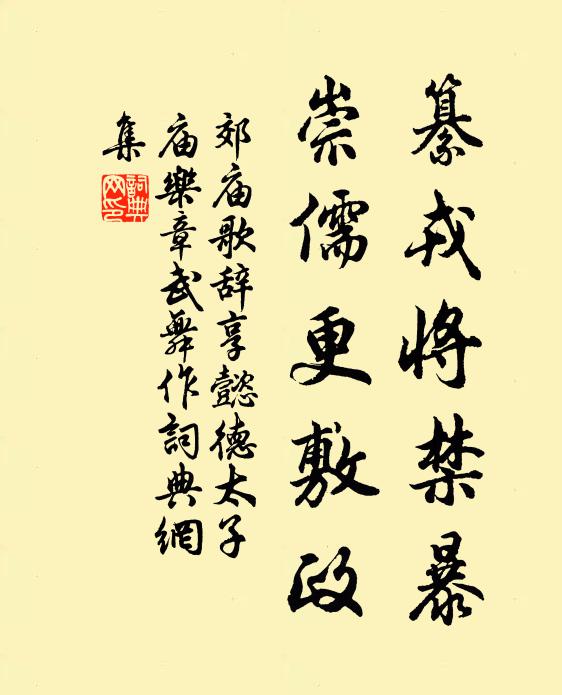 纂戎将禁暴
崇儒更敷政
郊庙歌辞享懿德太子
庙樂章武舞作詞典網
集
詞典
网印